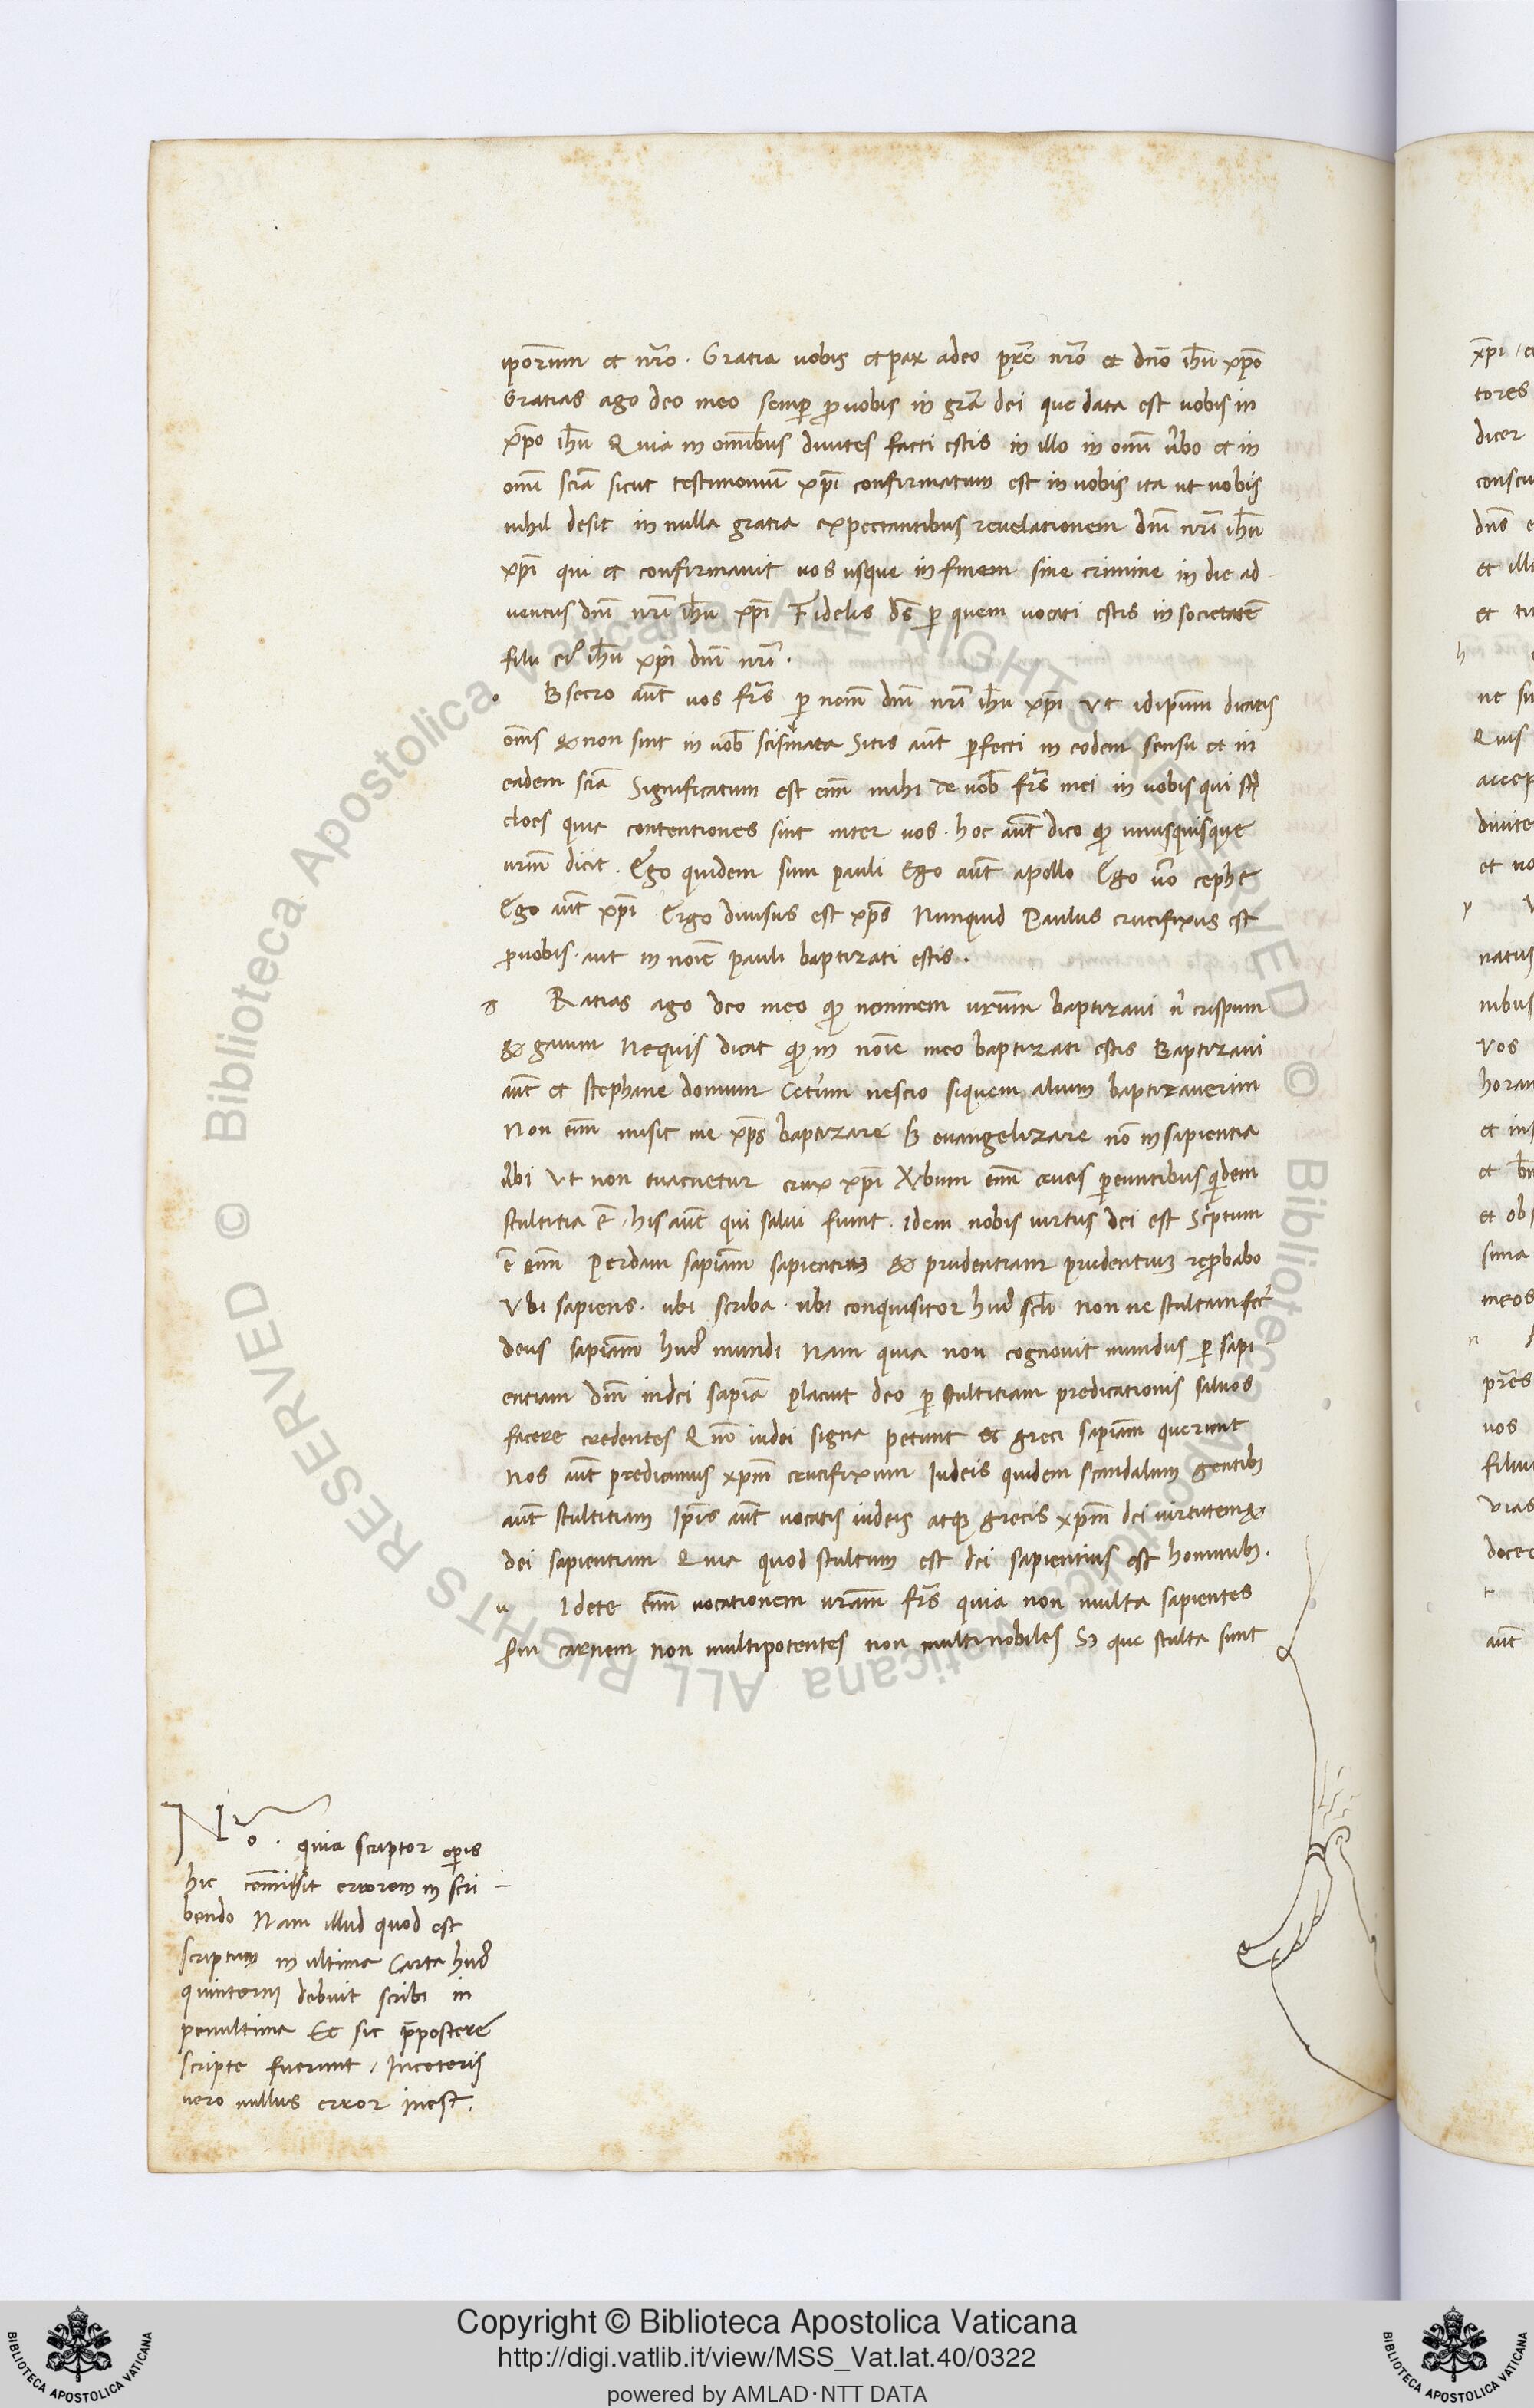 ipōrum et nr̄o. Gratia uobis et pax a deo pr̄e nr̄o et dn̄o ih̄u xp̄o
Gratias ago deo meo semp̱ ꝓ uobis in gr̄a dei que data est uobis in
xp̄o ih̄u Quia in om̄ibus diuites facti estis in illo in om̄i u̅bo et in
om̄i sciā sicut testimoniū xp̄i confirmatum est in uobis ita ut uobis
nihil desit in nulla gratia expectantibus reuelationem dn̄i nr̄i ih̄u
xp̄i qui et confirmauit uos usque in finem sine crimine in die ad
uentus dn̄i nr̄i ih̄u xp̄i Fidelis ds̄ ꝑ quem uocati estis in societatē
filii eiꝰ ih̄u xp̄i dn̄i nr̄i.
o Bsecro aūt uos fr̄s ꝑ nom̄ dn̄i nr̄i ih̄u xp̄i Ut idipsum dicatis
om̄s & non sint in uob̄ scismata Sitis aūt ꝑfecti in eodem sensu et in
eadem sciā Significatum est em̄ mihi de uob̄ fr̄s mei in uobis qui st̄
cloes quia contentiones sint inter uos. hoc aūt dico ꝙ unusquisque
ur̄m dicit. Ego quidem sum pauli Ego aūt apollo Ego u̅o cephe
Ego aūt xp̄i Ergo diuisus est xp̄s Nunquid Paulus crucifixus est
ꝓ uobis. aut in noīe pauli baptizati estis.
g Ratias ago deo meo ꝙ neminem ur̄um baptizaui n̄ crispum
& gaium Nequis dicat ꝙ in noīe meo baptizati estis Baptizaui
aūt et stephane domum Cet̄um nescio siquem alium baptizauerim
Non em̄ misit me xp̄s baptizare sꝫ euangelizare nō in sapientia
u̅bi Ut non euacuetur crux xp̄i U̅bum em̄ crucis ꝑeuntibus qͥdem
stultitia ē, his aūt qui salui fiunt. idem nobis uirtus dei est Scͥptum
ē em̄ Perdam sapiām sapientium & prudentiam prudentium reꝓbabo
Ubi sapiens. ubi scriba. ubi conquisitor huiꝰ scl̄i non ne stultam fec̄
deus sapiām huiꝰ mundi Nam quia non cognouit mundus ꝑ sapi
entiam dm̄ in dei sapiā placuit deo ꝑ stultitiam predicationis saluos
facere credentes Qm̄ iudei signa petunt et greci sapiām querunt
Nos aūt predicamus xp̄m crucifixum Iudeis quidem scandalum gentibꝫ
aūt stultitiam Ip̄is aūt uocatis iudeis atqꝫ grecis xp̄m dei uirtutem &
dei sapientiam Quia quod stultum est dei sapientius est hominibꝫ.
u Idete em̄ uocationem ur̄am fr̄s quia non multa sapientes
s̄m carnem non multi potentes non multi nobiles Sꝫ que stulta sunt
Nō. quia scriptor oꝑis
hic com̄isit errorem in scri
bendo Nam illud quod est
scriptum in ultima Carta huiꝰ
quinterni debuit scribi in
penultima Et sic p̄postere
scripte fuerunt, In ceteris
uero nullus error inest.
xp̄i, e
tores
dicer
dn̄s
et ill
et tu
h
ne su
Quis
accep
diuite
et no
natus
nibus
Vos
horam
et in
et ob
meos
n
pr̄es
uos
filiu
docee
t
aūt
© Biblioteca Apostolica Vaticana ALL RIGHTS RESERVED © Biblioteca Apostolica Vaticana ALL RIGHTS RESERVED
BIBLIOTECA APOSTOLICA VATICANA
Copyright © Biblioteca Apostolica Vaticana
http://digi.vatlib.it/view/MSS_Vat.lat.40/0322
powered by AMLAD·NTT DATA
BIBLIOTECA APOSTOLICA VATICANA